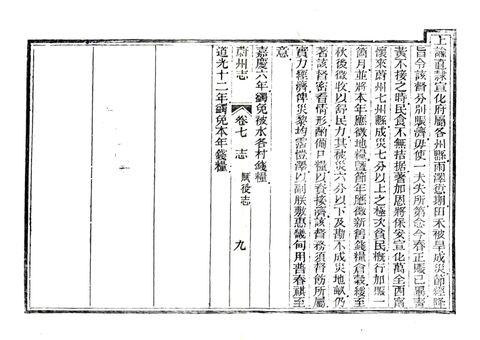 上諭直隸宣化府屬各州縣雨澤愆期田禾被旱成災節經降
旨令該督分別賑濟毋使一夫失所第念今春正賑已畢青
黃不接之時民食不無拮据著加恩將保安宣化萬全西甯
懷來蔚州七州縣成災七分以上之極次貧民概行加賑一
箇月並將本年應徵地糧暨節年應徵新舊錢糧倉穀緩至
秋後徵收以舒民力其被災六分以下及勘不成災地畝仍
著該督密看情形酌借口糧以資接濟該督務須督飭所屬
實力經濟俾災黎均霑愷澤以副朕敷惠畿甸用普春祺至
意
蔚州志 卷七 志 賦役志 九
嘉慶六年蠲免被水各村錢糧
道光十二年蠲免本年錢糧